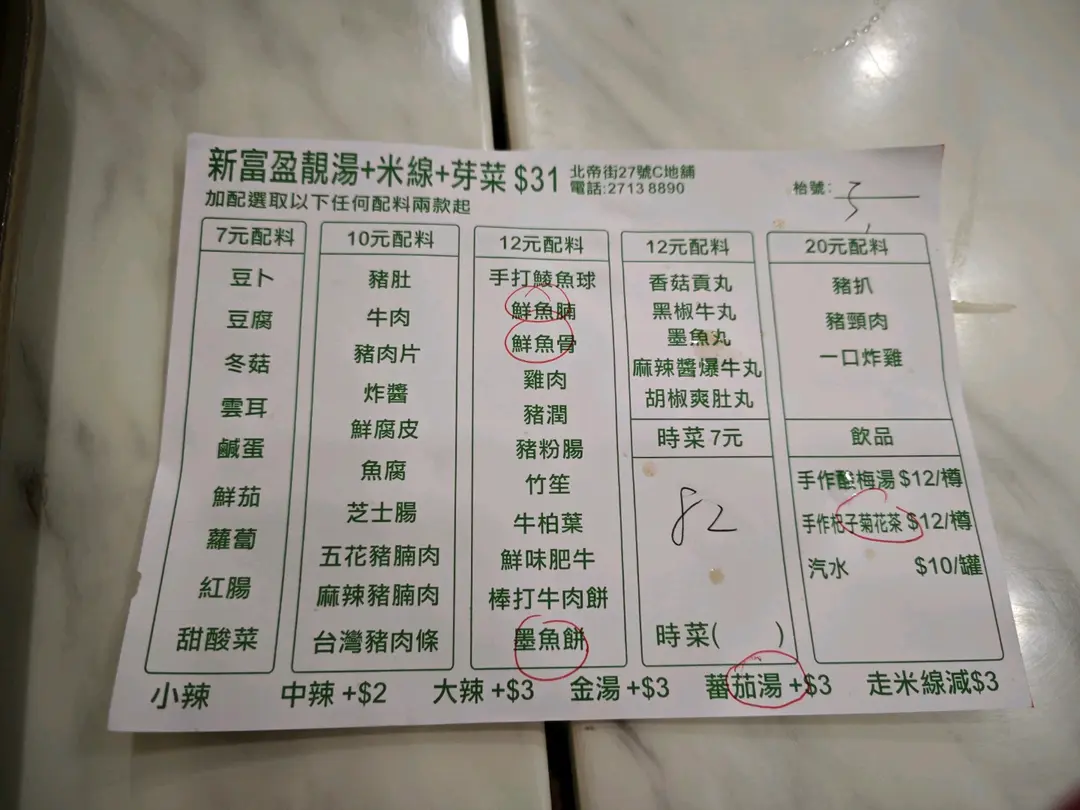 新富盈靚湯+米線+芽菜 $31
北帝街27號C地舖
電話:2713 8890
枱號:
加配選取以下任何配料兩款起
7元配料
豆卜
豆腐
冬菇
雲耳
鹹蛋
鮮茄
蘿蔔
紅腸
甜酸菜
10元配料
豬肚
牛肉
豬肉片
炸醬
鮮腐皮
魚腐
芝士腸
五花豬腩肉
麻辣豬腩肉
台灣豬肉條
12元配料
手打鯪魚球
鮮魚腩
鮮魚骨
雞肉
豬潤
豬粉腸
竹笙
牛柏葉
鮮味肥牛
棒打牛肉餅
墨魚餅
12元配料
香菇貢丸
黑椒牛丸
墨魚丸
麻辣醬爆牛丸
胡椒爽肚丸
時菜 7元
82
時菜( )
20元配料
豬扒
豬頸肉
一口炸雞
飲品
手作酸梅湯 $12/樽
手作杞子菊花茶 $12/樽
汽水 $10/罐
小辣 中辣 +$2 大辣 +$3 金湯 +$3 蕃茄湯 +$3 走米線減$3